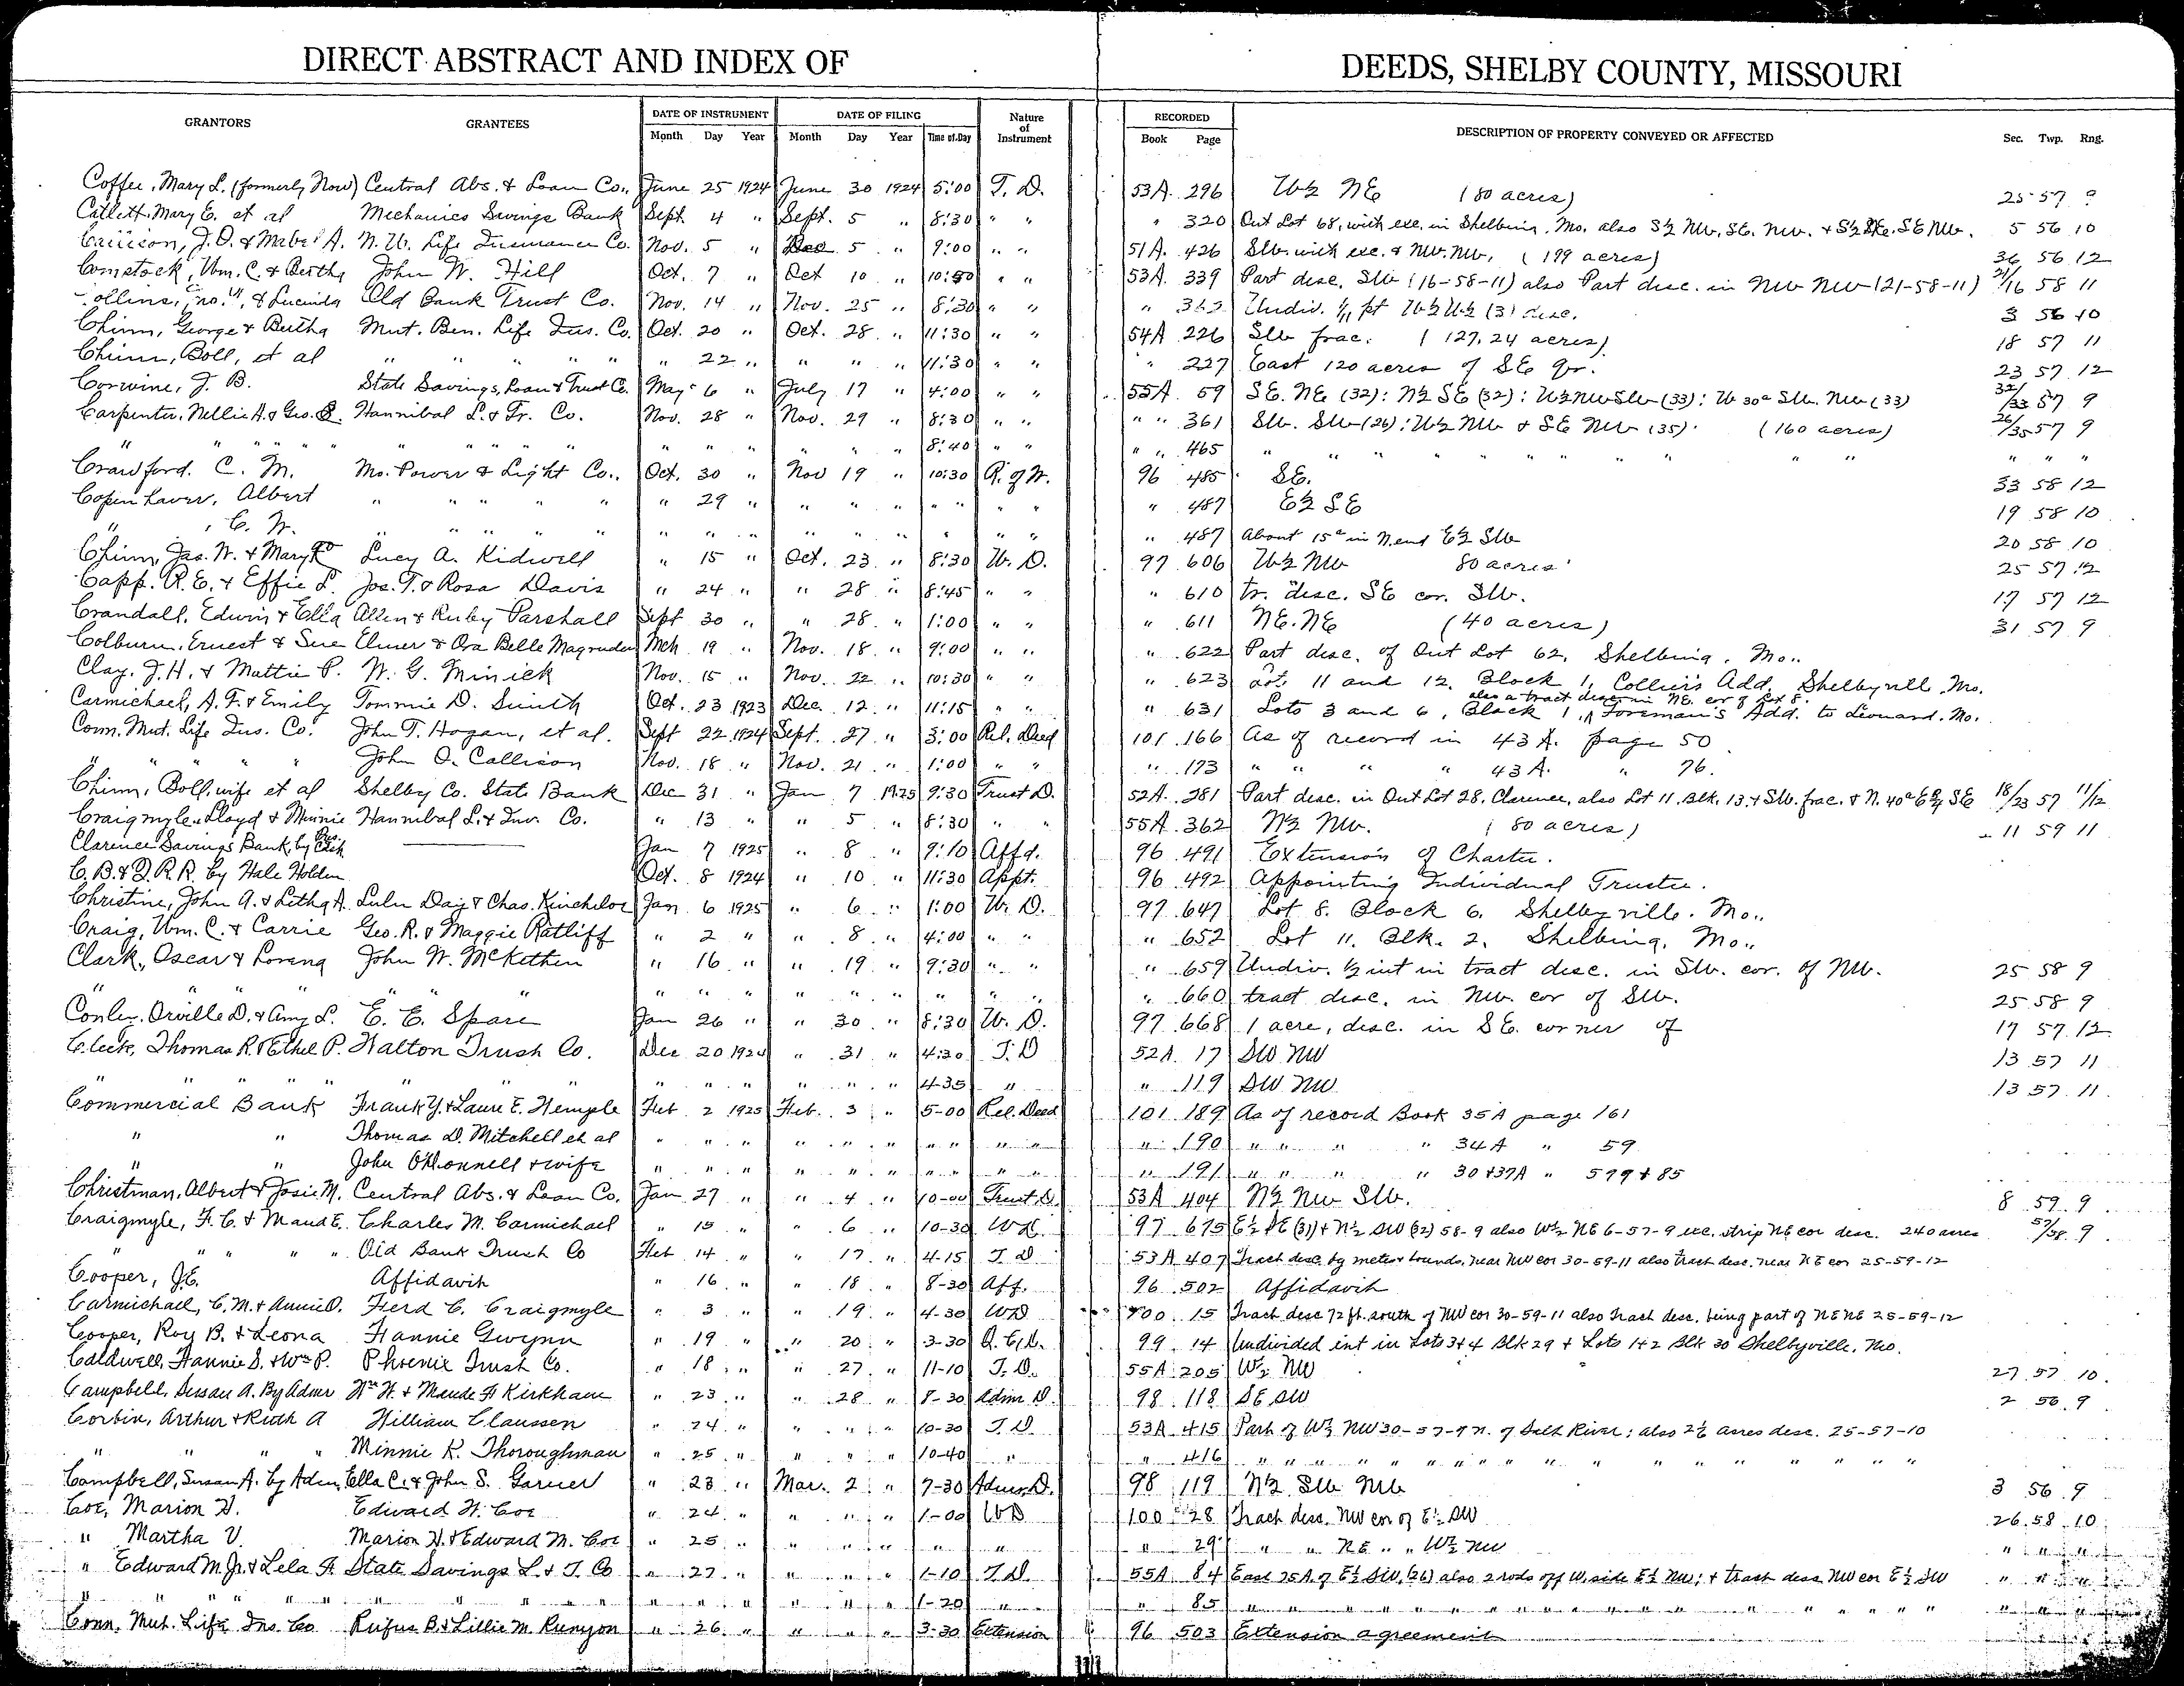 DIRECT ABSTRACT AND INDEX OF DEEDS, SHELBY COUNTY, MISSOURI
GRANTORS GRANTEES DATE OF INSTRUMENT DATE OF FILING Nature of Instrument RECORDED DESCRIPTION OF PROPERTY CONVEYED OR AFFECTED Sec. Twp. Rng.
Month Day Year Month Day Year Time of Day Book Page
Coffee, Mary L. (formerly Now) Central Abs. & Loan Co., June 25 1924 June 30 1924 5:00 T. D. 53A. 296 W½ NE (80 acres) 25 57 9
Catlett, Mary E. et al Mechanics Savings Bank Sept. 4 " Sept. 5 " 8:30 " " " 320 Out Lot 68, with exc. in Shelbina, Mo. also S½ NW, SE. NW. & S½ SE. SE NW. 5 56 10
J. O. & Mabel A. N. W. Life Insurance Co. Nov. 5 " Dec 5 " 9:00 " " 51A. 426 SW. with exc. & NW. NW. (199 acres) 36 56 12
Comstock, Wm. C. & Bertha John W. Hill Oct. 7 " Oct 10 " 10:50 " " 53A. 339 Part desc. SW (16-58-11) also Part desc. in NW NW (21-58-11) 21/16 58 11
Collins, Jno. & Lucinda Old Bank Trust Co. Nov. 14 " Nov. 25 " 8:30 " " " 362 Undiv. 1/11 pt W½ W½ (3) desc. 3 56 10
Chinn, George & Bertha Mut. Ben. Life Ins. Co. Oct. 20 " Oct. 28 " 11:30 " " 54A 226 SW frac. (127.24 acres) 18 57 11
Chinn, Boll, et al " " " " " " 22 " " " " 11:30 " " " 227 East 120 acres of SE qr. 23 57 12
Corwine, J. B. State Savings, Loan & Trust Co. May 6 " July 17 " 4:00 " " 55A. 59 SE. NE (32): N½ SE (32): W½ NW SW (33): W 30a SW. NW (33) 32/33 57 9
Carpenter, Nellie A. & Geo. E. Hannibal L. & Tr. Co. Nov. 28 " Nov. 29 " 8:30 " " " " 361 SW. SW (26): W½ NW & SE NW (35). (160 acres) 26/35 57 9
" " " " " " " " " " " " " " " 8:40 " " " " 465 " " " " " " " " " " " " "
Crawford, C. M. Mo. Power & Light Co., Oct. 30 " Nov 19 " 10:30 R. of W. 96 485 SE. 33 58 12
Copenhaver, Albert " " " " " 29 " " " " " " " " " 487 E½ SE 19 58 10
" , C. W. " " " " " " " " " " " " " " 487 About 15a in N. end E½ SW 20 58 10
Chinn, Jas. W. & Mary Lucy A. Kidwell " 15 " Oct. 23 " 8:30 W. D. 97 606 W½ NW 80 acres 25 57 12
Capp. R. E. & Effie L. Jos. T. & Rosa Davis " 24 " " 28 " 8:45 " " " 610 tr. desc. SE cor. SW. 17 57 12
Crandall, Edwin & Ella Allen & Ruby Parshall Sept 30 " " 28 " 1:00 " " " 611 NE. NE (40 acres) 31 57 9
Colburn, Ernest & Sue Elmer & Ora Belle Magruder Mch 19 " Nov. 18 " 9:00 " " " 622 Part desc. of Out Lot 62, Shelbina, Mo..
Clay, J. H. & Mattie P. W. G. Minick Nov. 15 " Nov. 22 " 10:30 " " " 623 Lots 11 and 12, Block 1, Collier's Add. Shelbyville Mo.
also a tract desc. in NE. cor of Lot 8.
Carmichael, A. F. & Emily Tommie D. Smith Oct. 23 1923 Dec. 12 " 11:15 " " " 631 Lots 3 and 6, Block 1, Foreman's Add. to Leonard, Mo.
Conn. Mut. Life Ins. Co. John T. Hogan, et al. Sept 22 1924 Sept. 27 " 3:00 Rel. Deed 101 166 As of record in 43 A. page 50
" " " " John O. Callison Nov. 18 " Nov. 21 " 1:00 " " " 173 " " " " 43 A. " 76.
Chinn, Boll, wife et al Shelby Co. State Bank Dec 31 " Jan 7 1925 9:30 Trust D. 52A. 281 Part desc. in Out Lot 28, Clarence, also Lot 11, Blk. 13, & SW. frac. & N. 40a E¾ SE 18/23 57 11/12
Craigmyle, Lloyd & Minnie Hannibal L. & Inv. Co. " 13 " " 5 " 8:30 " " 55A. 362 N½ NW. (80 acres) 11 59 11
Clarence Savings Bank, by Pres. Jan 7 1925 " 8 " 9:10 Affd. 96 491 Extension of Charter.
C. B. & Q. R. R. by Hale Holden Oct. 8 1924 " 10 " 11:30 Appt. 96 492 Appointing Individual Trustee.
Christine, John A. & Letha A. Lulu Day & Chas. Kincheloe Jan 6 1925 " 6 " 1:00 W. D. 97 647 Lot 8, Block 6, Shelbyville, Mo..
Craig, Wm. C. & Carrie Geo. R. & Maggie Ratliff " 2 " " 8 " 4:00 " " " 652 Lot 11, Blk. 2, Shelbina, Mo..
Clark, Oscar & Lorena John W. McKethen " 16 " " 19 " 9:30 " " " 659 Undiv. ½ int in tract desc. in SW. cor. of NW. 25 58 9
" " " " " " " " " " " " " " " 660 tract desc. in NW. cor of SW. 25 58 9
Conley, Orville D. & Amy L. E. E. Spare Jan 26 " " 30 " 8:30 W. D. 97 668 1 acre, desc. in SE. corner of 17 57 12
Cleek, Thomas R. & Ethel P. Walton Trust Co. Dec 20 1924 " 31 " 4:30 T. D 52A. 17 SW NW 13 57 11
" " " " " " " " " " " " " 4-35 " " 119 SW NW 13 57 11
Commercial Bank Frank Y. & Laura E. Hemple Feb 2 1925 Feb. 3 " 5-00 Rel. Deed 101 189 As of record Book 35A page 161
" " Thomas D. Mitchell et al " " " " " " " " " " " 190 " " " " 34A " 59
" " John O'Donnell & wife " " " " " " " " " " " 191 " " " " 30 & 37A " 599 & 85
Christman, Albert & Josie M. Central Abs. & Loan Co. Jan 27 " " 4 " 10-00 Trust D. 53A 404 N½ NW SW. 8 59 9
Craigmyle, F. C. & Maud E. Charles M. Carmichael " 15 " " 6 " 10-30 WD. 97 675 E½ SE (31) & N½ SW (32) 58-9 also W½ NE 6-57-9 exc. strip NE cor desc. 240 acres 57/58 9
" " " " " Old Bank Trust Co Feb 14 " " 17 " 4-15 T. D 53A 407 Tract desc. by metes & bounds, near NW cor 30-59-11 also tract desc. near NE cor 25-59-12
Cooper, J.E. Affidavit " 16 " " 18 " 8-30 Aff. 96 502 Affidavit
Carmichael, C. M. & Annie D. Ferd C. Craigmyle " 3 " " 19 " 4-30 WD 100 15 Tract desc 72 ft. south of NW cor 30-59-11 also tract desc. being part of NE NE 25-59-12
Cooper, Roy B. & Leona Fannie Gwynn " 19 " " 20 " 3-30 Q. C. D. 99 14 Undivided int in Lots 3+4 Blk 29 + Lots 1+2 Blk 30 Shelbyville, Mo.
Caldwell, Fannie S. & Wm P. Phoenix Trust Co. " 18 " " 27 " 11-10 T. D. 55A 205 W½ NW 27 57 10
Campbell, Susan A. By Admr Wm H. & Maude F Kirkham " 23 " " 28 " 8-30 Admr D. 98 118 SE SW 2 56 9
Corbin, Arthur & Ruth A William Claussen " 24 " " " " 10-30 T. D. 53A 415 Part of W½ NW 30-57-9 N. of Salt River; also 2½ acres desc. 25-57-10
" " " " Minnie K. Thoroughman " 25 " " " " 10-40 " " 416 " " " " " " " " " " " " " " " "
Campbell, Susan A. by Adm. Ella C. & John S. Garner " 23 " Mar. 2 " 7-30 Admr. D. 98 119 N½ SW NW 3 56 9
Coe, Marion H. Edward W. Coe " 24 " " " " 1-00 WD 100 28 Tract desc. NW cor of E½ SW 26 58 10
" Martha V. Marion H. & Edward M. Coe " 25 " " " " " " " 29 " " NE " " W½ NW " " "
" Edward M. Jr. & Lela F. State Savings L. & T. Co " 27 " " " " 1-10 T. D. 55A 84 East 25 A. of E½ SW, (26) also 2 rods off W. side E½ NW; & tract desc NW cor E½ SW " " "
" " " " " " " " " " " " " " " 1-20 " " 85 " " " " " " " " " " " " " " " " " "
Conn. Mut. Life Ins. Co Rufus B. & Lillie M. Runyon " 26 " " " " 3-30 Extension 96 503 Extension agreement